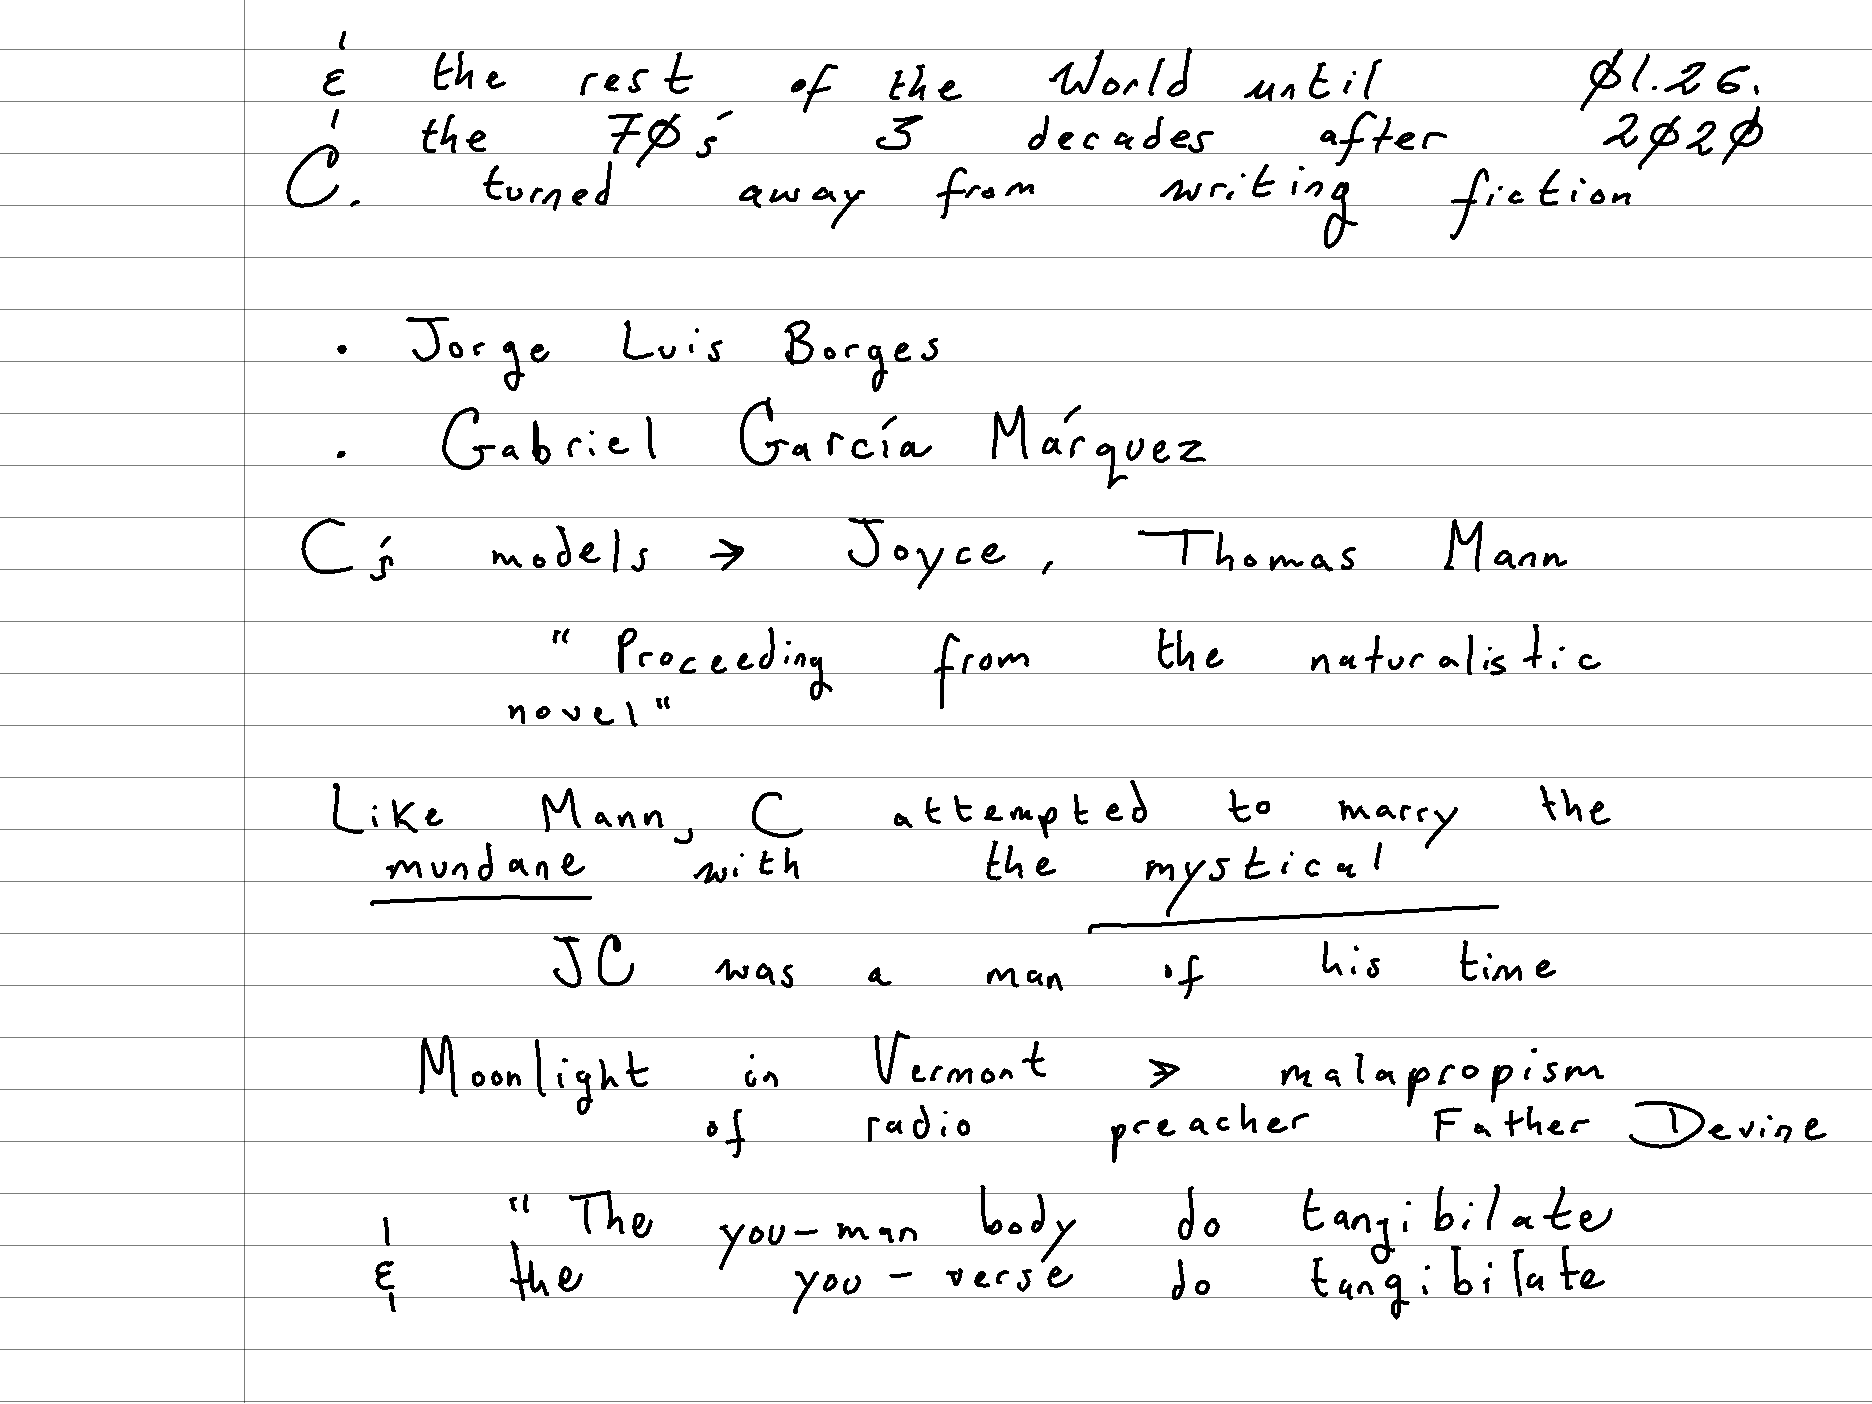 & the rest of the World until 01.26.
the 70's 3 decades after 2020
C. turned away from writing fiction
· Jorge Luis Borges
· Gabriel García Márquez
C's models → Joyce, Thomas Mann
"Proceeding from the naturalistic
novel"
Like Mann, C attempted to marry the
mundane with the mystical
JC was a man of his time
Moonlight in Vermont > malapropism
of radio preacher Father Devine
"The you-man body do tangibilate
& the you-verse do tangibilate